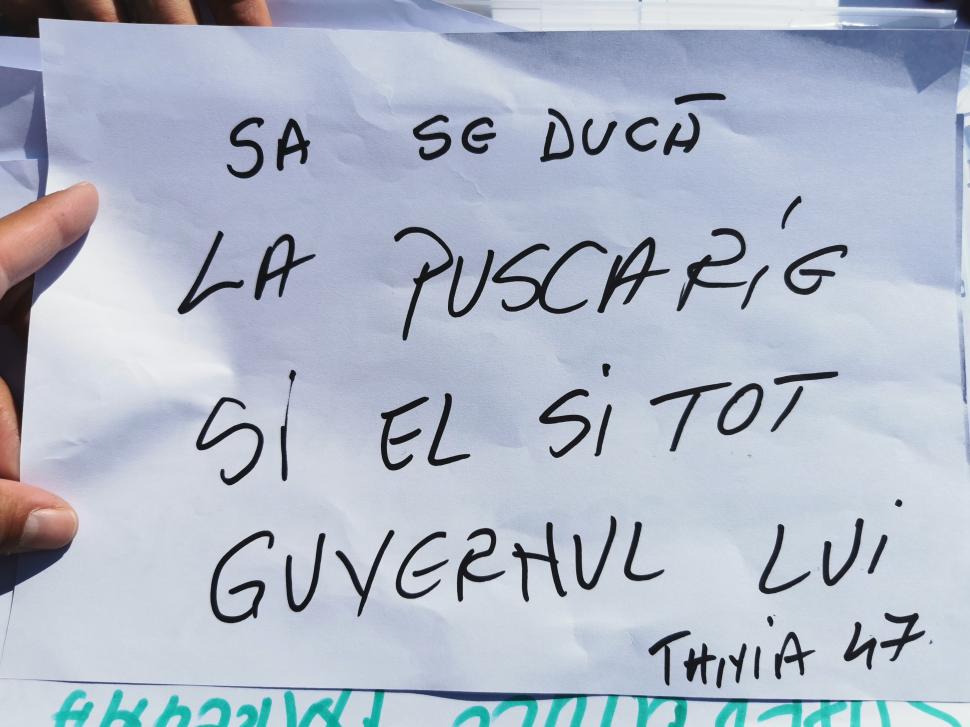 SA SE DUCĀ
LA PUSCARIE
SI EL SI TOT
GUVERNUL LUI
47